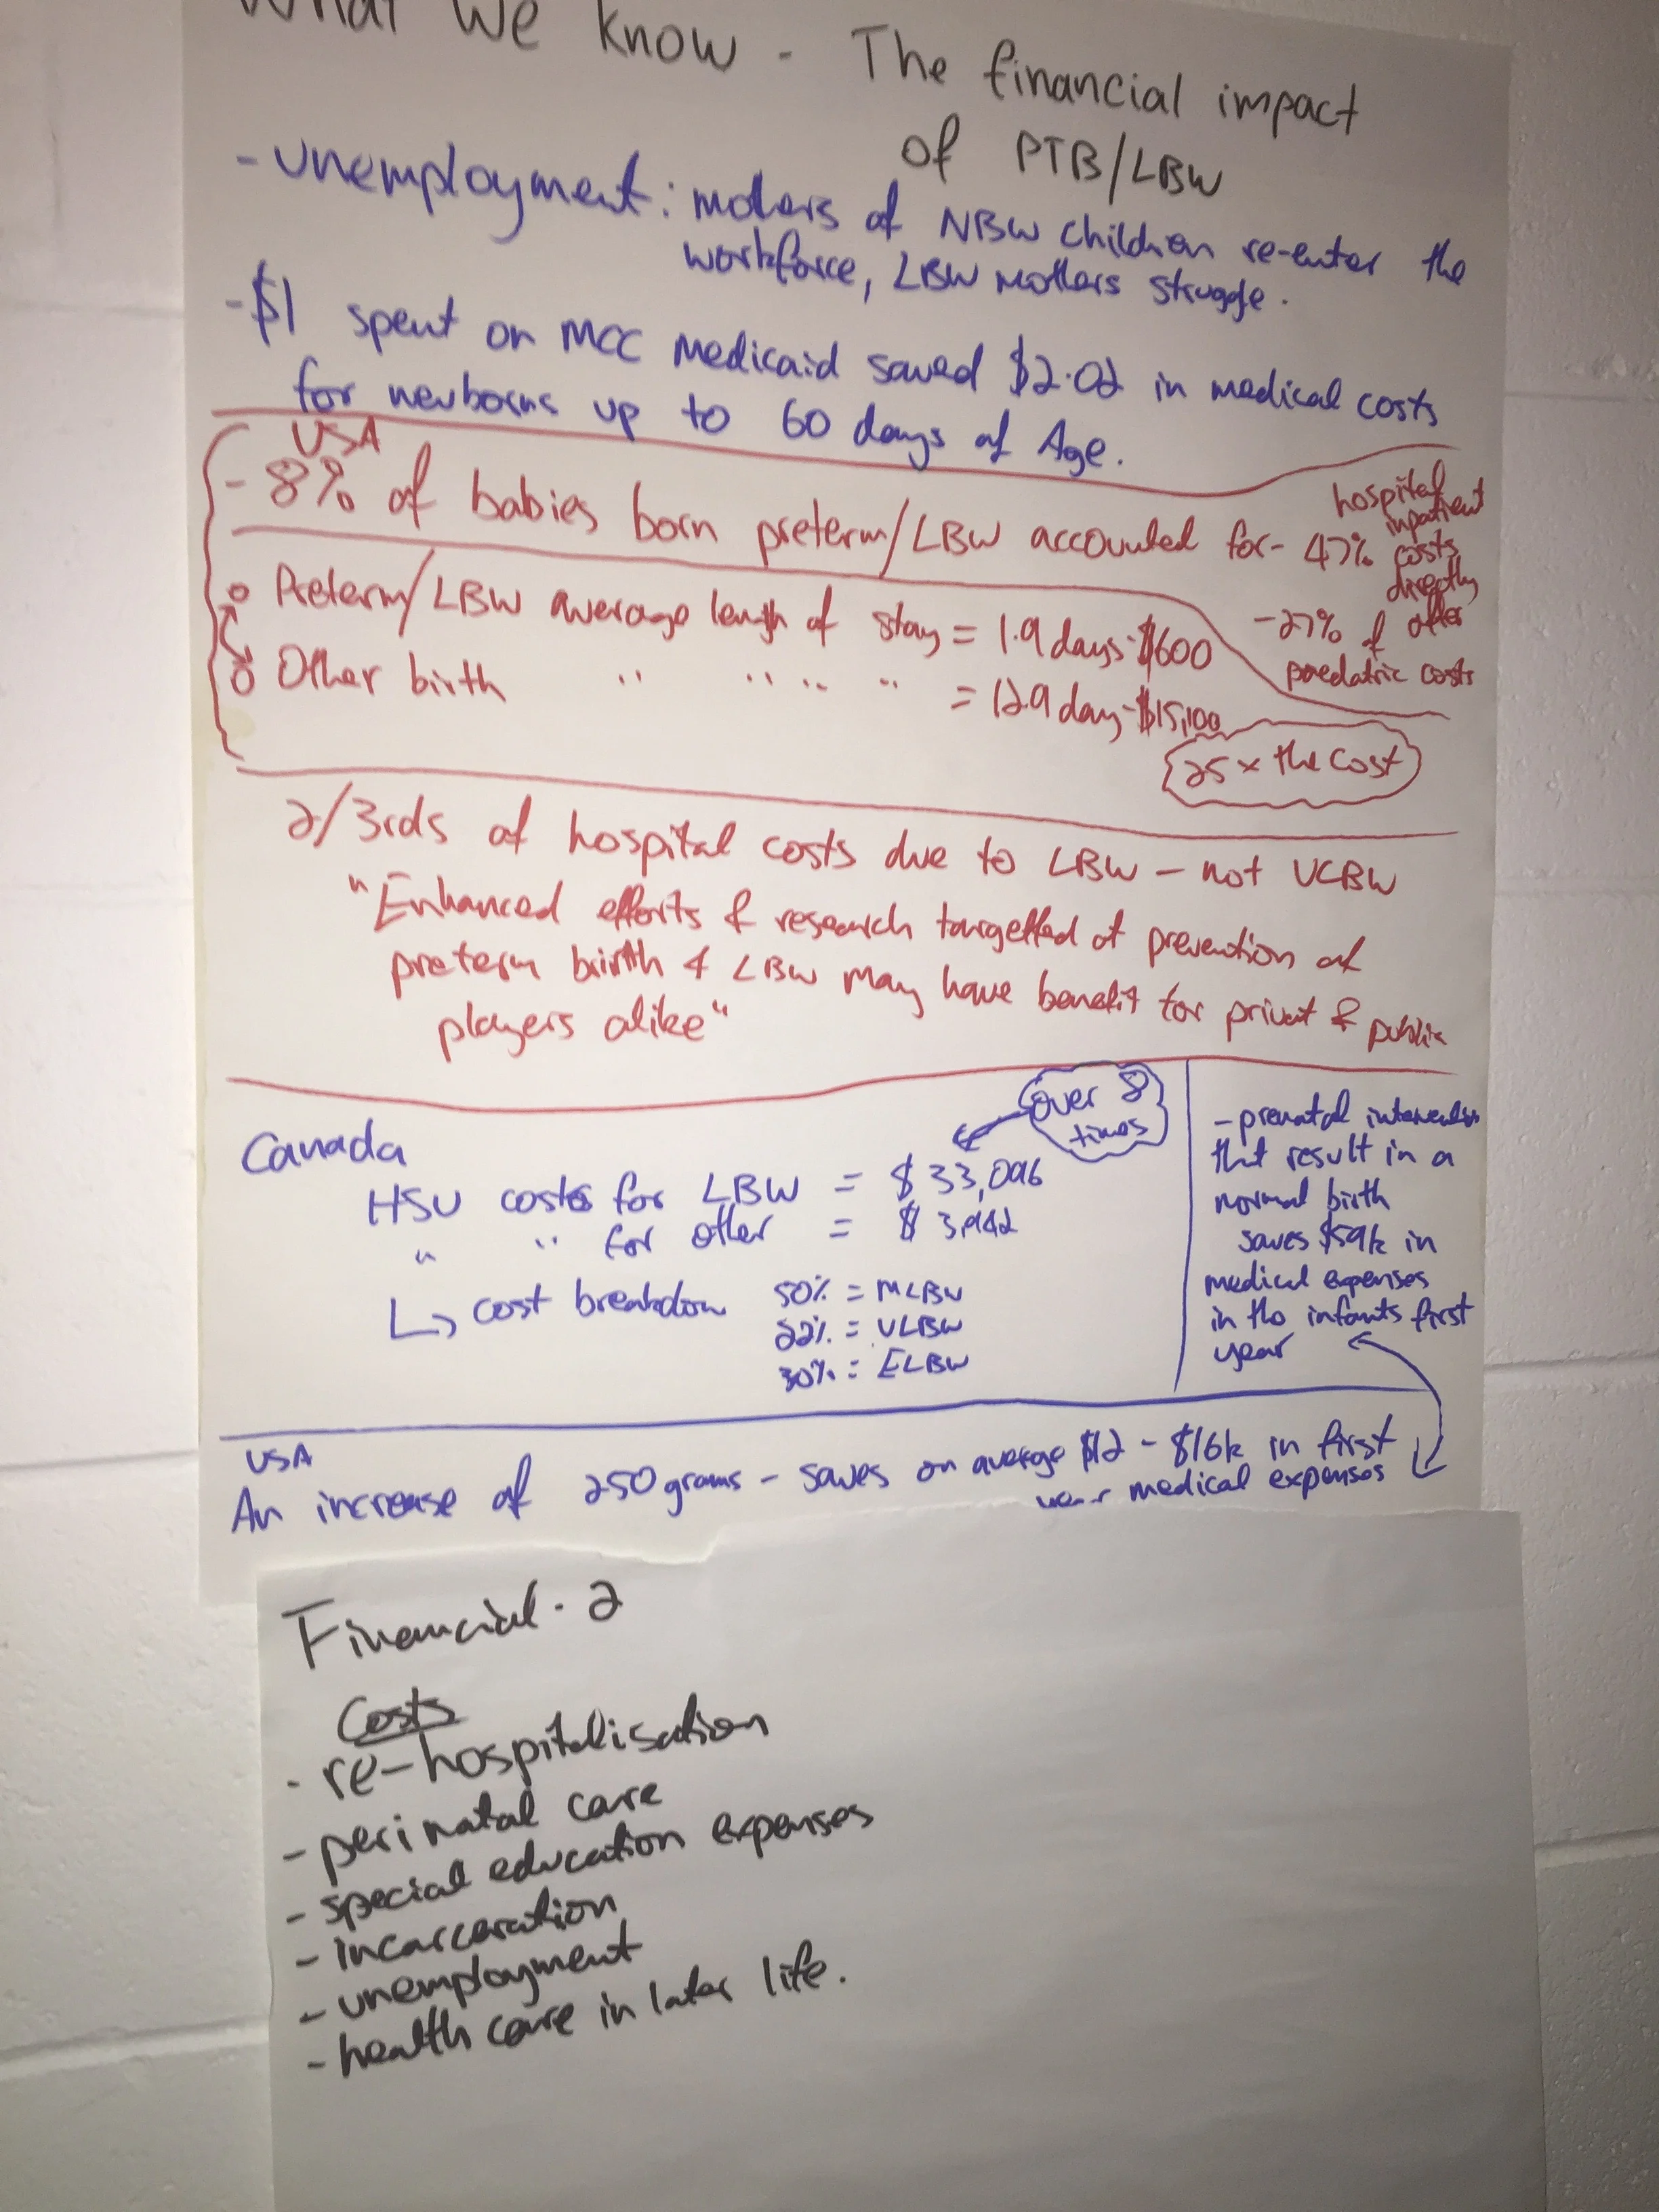 What We know - The financial impact
of PTB/LBW
- Unemployment: mothers of NBW children re-enter the
workforce, LBW mothers struggle.
- $1 spent on MCC Medicaid saved $2.02 in medical costs
for newborns up to 60 days of Age.
USA
- 8% of babies born preterm/LBW accounted for - 47%
hospital
inpatient
costs
directly
- 27% of other
paedatric costs
o Preterm/LBW average length of stay = 1.9 days - $600
o Other birth " " " " = 12.9 day - $15,100
25 x the cost
2/3rds of hospital costs due to LBW - not VLBW
"Enhanced efforts & research targetted at prevention of
preterm birth & LBW may have benefit for privat & public
players alike"
over 8
times
Canada
HSU costs for LBW = $33,096
" " for other = $
↳ cost breakdow 50% = MLBW
22% = VLBW
30% = ELBW
- prenatal
that result in a
normal birth
saves $59k in
medical expenses
in the infants first
year
USA
An increase of 250 grams - saves on average $12 - $16k in first
year medical expenses
Financial - 2
Costs
- re-hospitalisation
- perinatal care
- special education expenses
- incarceration
- unemployment
- health care in later life.